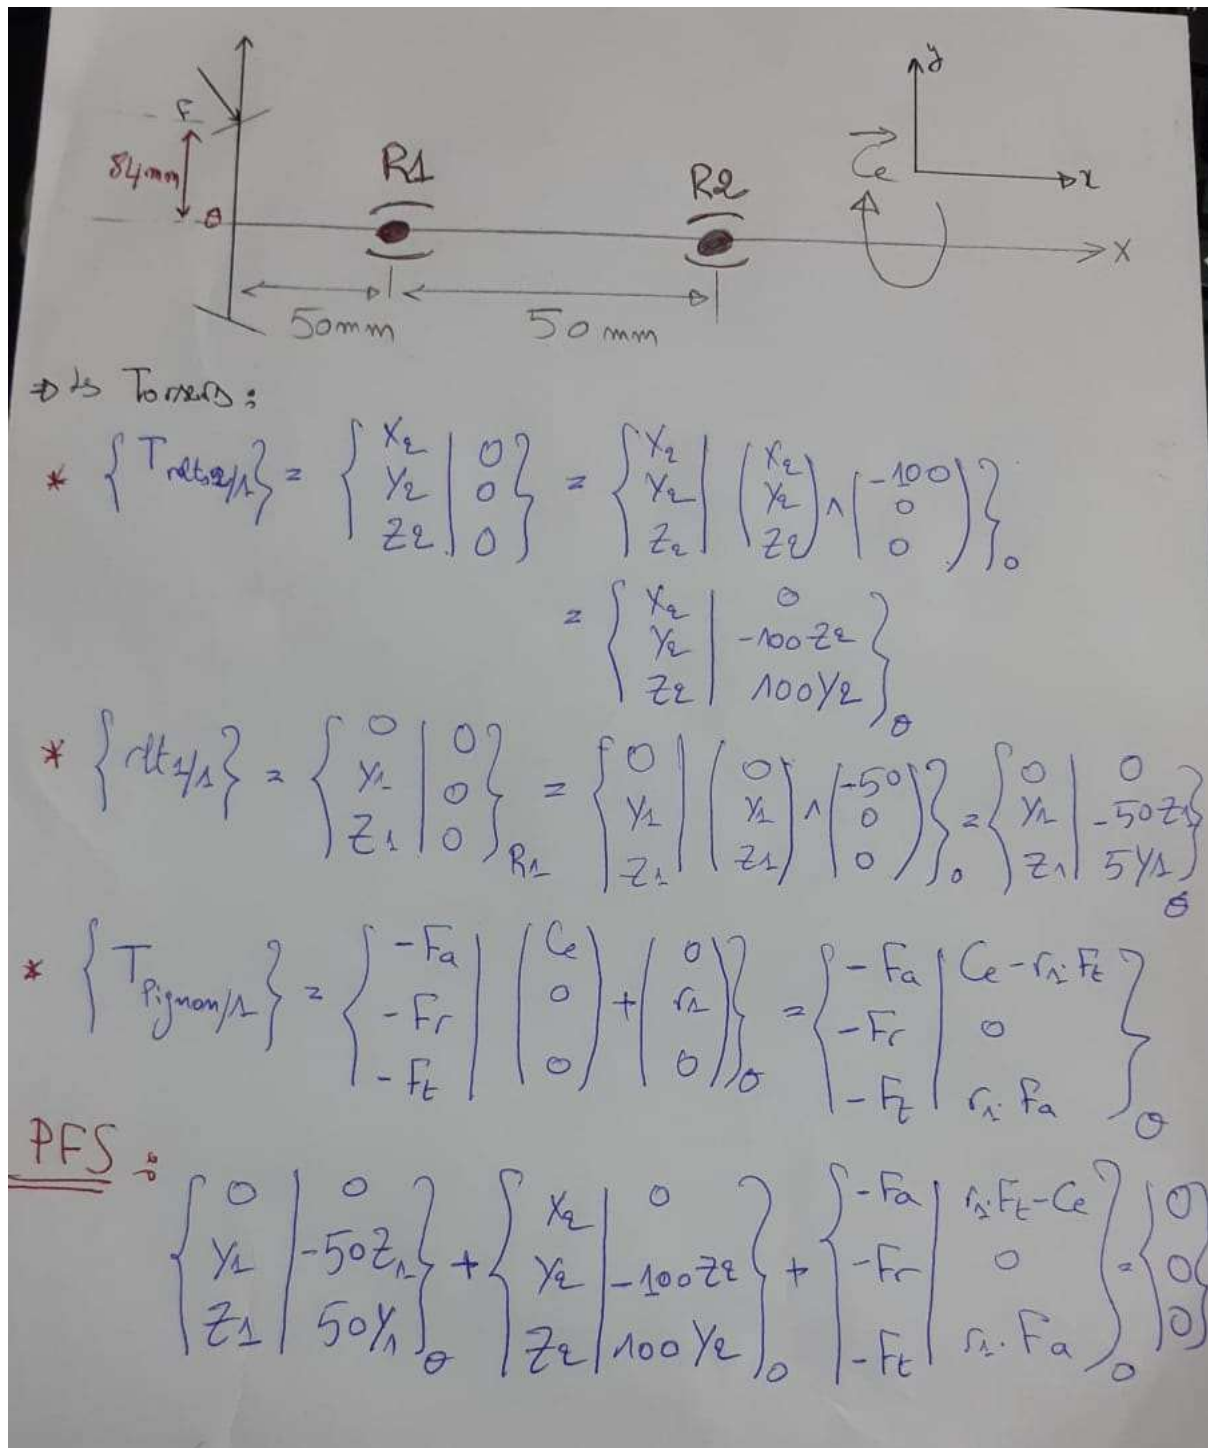 y
F
Ce
84mm
R1
R2
x
O
X
50mm
50mm
⇒ Torseurs :
* { T rlt2/1 } = { X2 Y2 Z2 | 0 0 0 } = { X2 Y2 Z2 | (X2 Y2 Z2) ∧ (-100 0 0) }O
= { X2 Y2 Z2 | 0 -100Z2 100Y2 }O
* { rlt1/1 } = { 0 Y1 Z1 | 0 0 0 }R1 = { 0 Y1 Z1 | (0 Y1 Z1) ∧ (-50 0 0) }O = { 0 Y1 Z1 | 0 -50Z1 5Y1 }O
* { T Pignon/1 } = { -Fa -Fr -Ft | (Ce 0 0) + (0 r1 0) }O = { -Fa -Fr -Ft | Ce-r1.Ft 0 r1.Fa }O
PFS :
{ 0 Y1 Z1 | 0 -50Z1 50Y1 }O + { X2 Y2 Z2 | 0 -100Z2 100Y2 }O + { -Fa -Fr -Ft | r1.Ft-Ce 0 r1.Fa }O = { 0 0 0 }